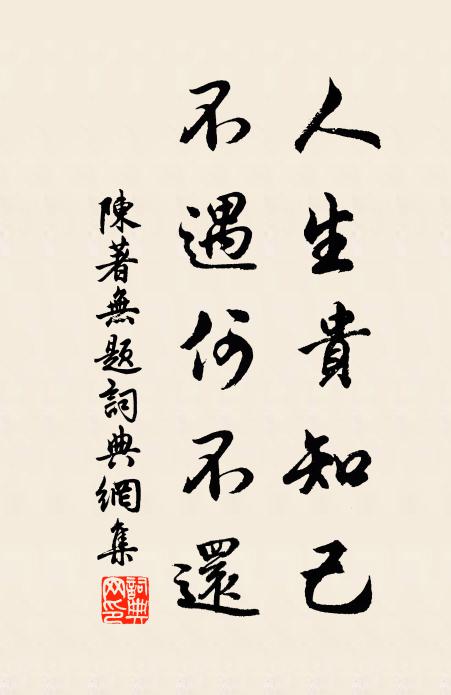 人生貴知己
不遇何不還
陳著無題詞典網集
詞典网印